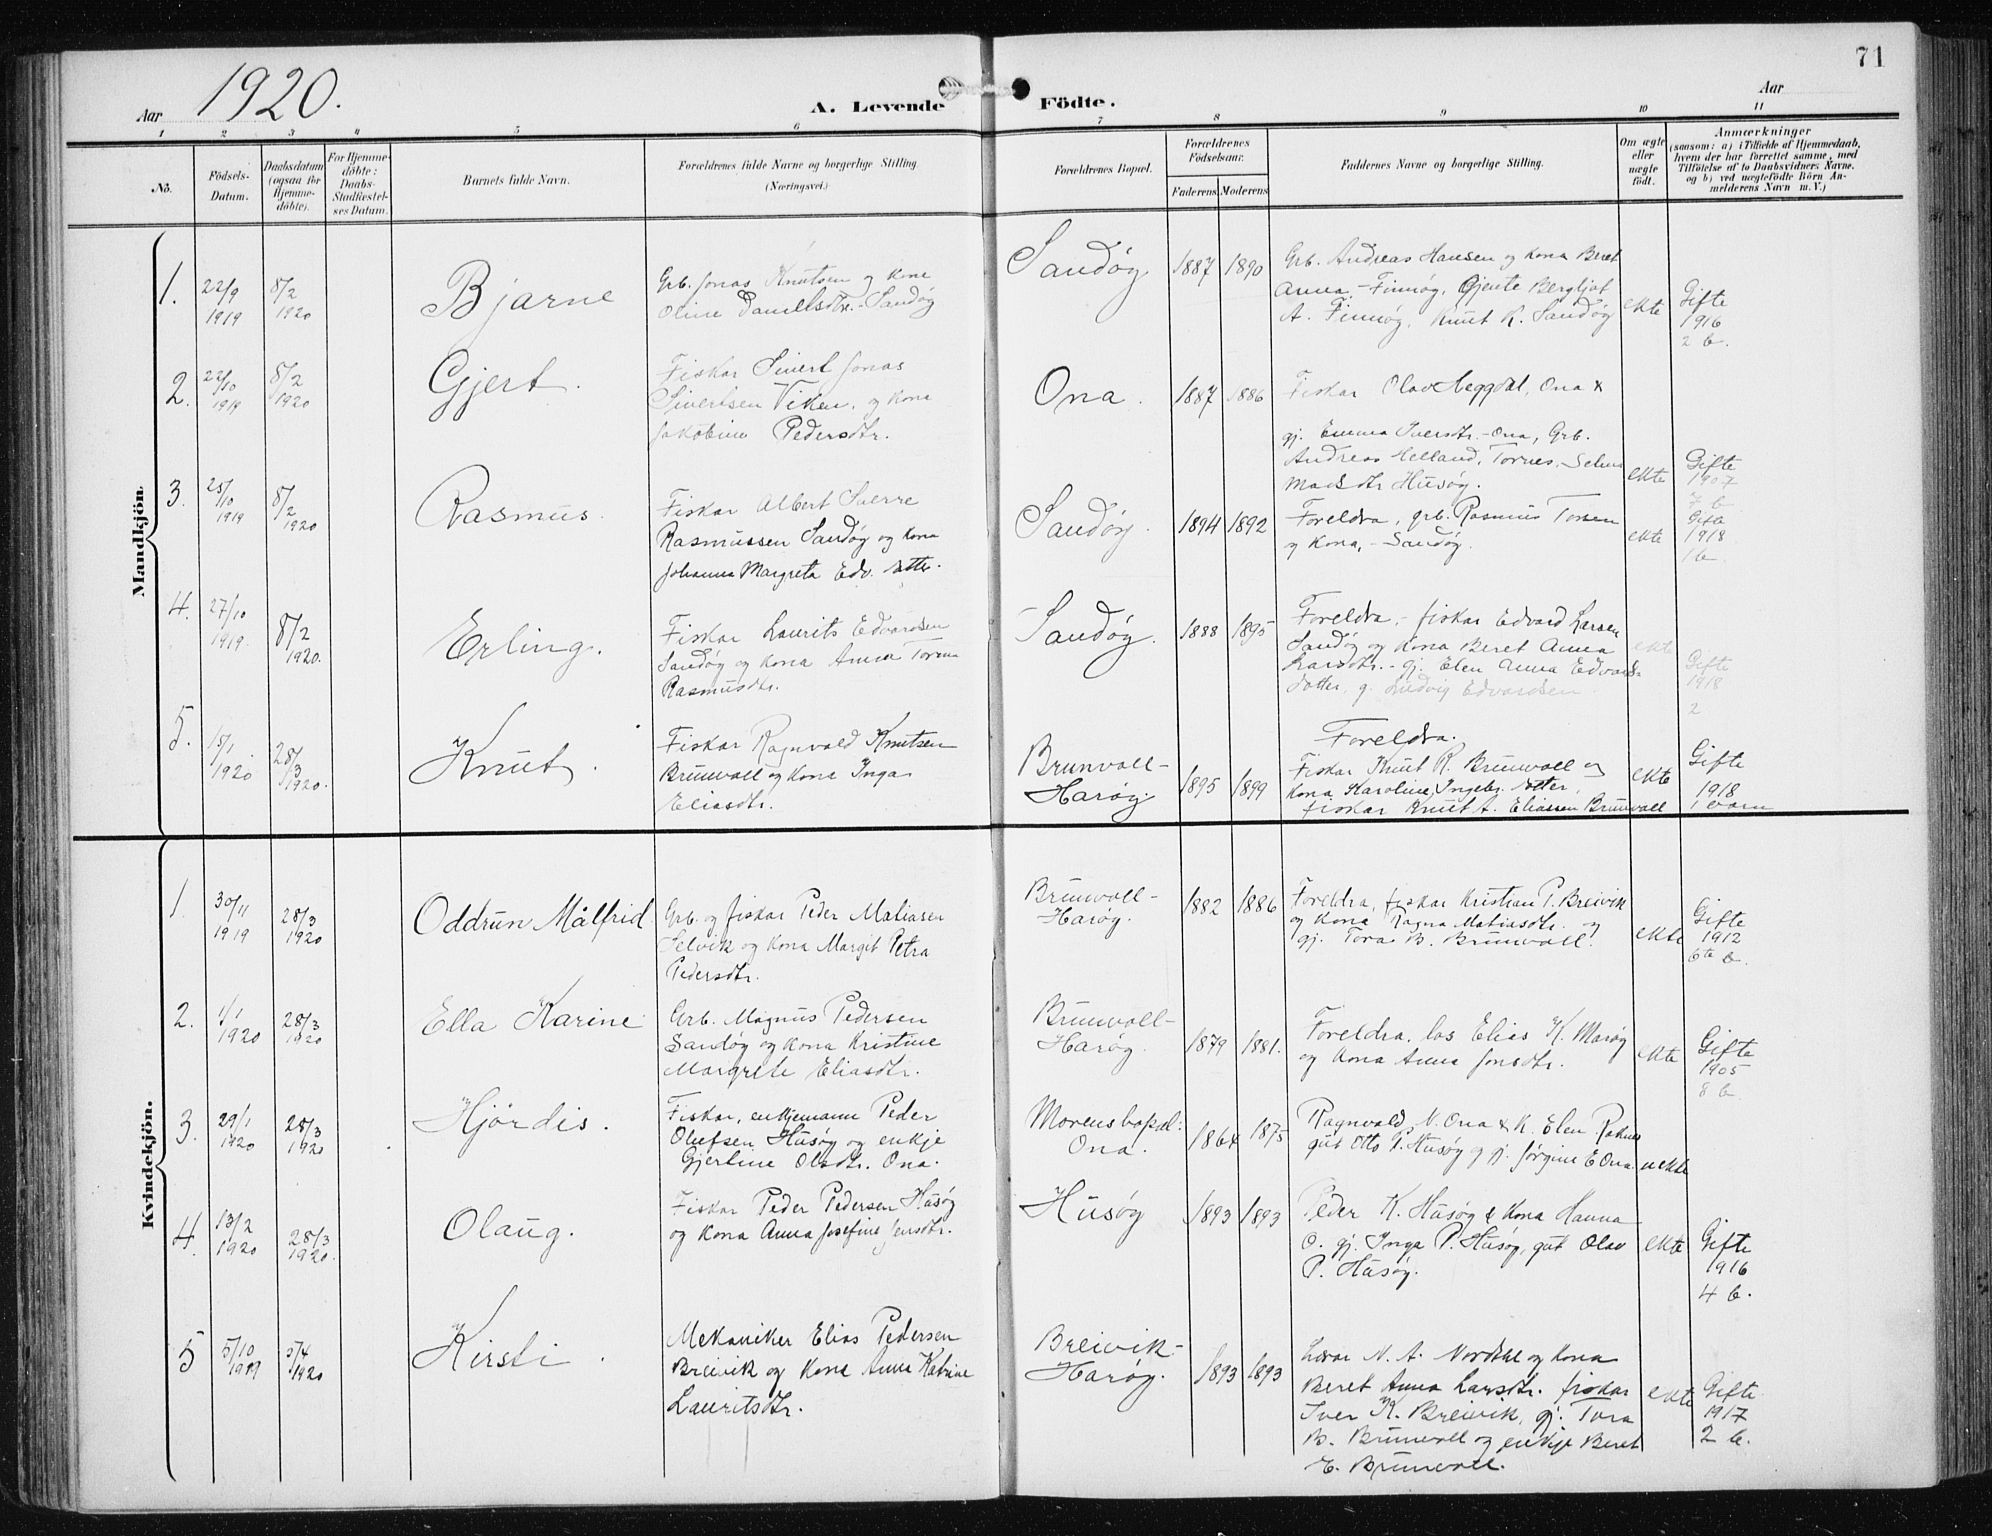 71
Aar 1920.
A. Levende Födte.
Aar
1 2 3 4 5 6 7 8 9 10 11
No.
Födsels-Datum.
Daabsdatum (ogsaa for Hjemme-døbte).
For Hjemme-døbte: Daabs-Stadfæstel-ses Datum.
Barnets fulde Navn.
Forældrenes fulde Navne og borgerlige Stilling.
(Næringsvei.)
Forældrenes Bopæl.
Forældrenes Födselsaar.
Faderens Moderens
Faddernes Navne og borgerlige Stilling.
Om ægte eller uægte født.
Anmærkninger
(saasom: a) i Tilfælde af Hjemmedaab,
hvem der har forrettet samme, med
Tilföielse af to Daabsvidners Navne.
og b) ved uægtefödte Börn An-
melderens Navn m. V.)
Mandkjön.
1. 22/9 1919 8/2 1920 Bjarne
Grb. Jonas Knutsen og kone
Oline Danielsdtr. - Sandøy
Sandøy 1887 1890
Grb. Andreas Hansen og kona Beret
Anna - Finnøy, Gjente Bergljot
A. Finnøy, Knut R. Sandøy
ekte
Gifte
1916
2 b.
2. 22/10 1919 8/2 1920 Gjert.
Fiskar Sivert Jonas
Sivertsen Viken, og kona
Jakobine Pedersdtr.
Ona. 1887 1886
Fiskar Olav Heggdal, Ona &
gj. Emma Iversdtr. - Ona, Grb.
Andreas Helland, Tornes,
Husøy.
ekte
Gifte
1907
7 b
3. 25/10 1919 8/2 1920 Rasmus
Fiskar Albert Sverre
Rasmussen Sandøy og kona
Johanna Margreta Edv. dotter.
Sandøy. 1894 1892
Foreldra, grb. Rasmus
og kona, - Sandøy.
ekte
Gifte
1918
1 b
4. 27/10 1919. 8/2 1920. Erling.
Fiskar Laurits Edvardsen
Sandøy og kona Anna
Rasmusdtr.
Sandøy. 1888 1895
Foreldra, - fiskar Edvard Larsen
Sandøy og kona Beret Anna
Larsdtr. - gj. Elen Anna Edvards-
dotter, g. Ludvig Edvardsen.
ekte
Gifte
1918
2
5. 15/1 1920 28/3 1920. Knut.
Fiskar Ragnvald Knutsen
Brunvoll og kona Inga
Eliasdtr.
Brunvoll-
Harøy. 1895 1899
Foreldra.
Fiskar Knut R. Brunvoll og
kona Karoline Ingebr. dotter,
fiskar Knut A. Eliassen Brunvoll
ekte
Gifte
1918
1 barn
Kvindekjön.
1. 30/11 1919 28/3 1920 Oddrun Målfrid
Grb. og fiskar Peder Matiasen
Selvik og kona Margit Petra
Pedersdtr.
Brunvoll-
Harøy. 1882 1886
Foreldra, fiskar Kristian P. Breivik
og kona Ragna Matiasdtr. og
gj. Tora B. Brunvoll.
ekte
Gifte
1912
6te b.
2. 1/1 1920 28/3 1920 Ella Karine
Grb. Magnus Pedersen
Sandøy og kona Kristine
Margrete Eliasdtr.
Brunvoll-
Harøy. 1879 1881.
Foreldra, los Elias K. Marøy
og kona Anna Jonsdtr.
ekte
Gifte
1905
8 b.
3. 29/1 1920 28/3 1920 Hjördis.
Fiskar, enkjemann Peder
Olufsen Husøy og enkje
Gjertine Olsdtr. Ona.
Morens bopæl:
Ona. 1864 1875
Ragnvald N. Ona & K. Elen
gut Otto P. Husøy og gj. Jørgine E Ona.
uekte
4. 13/2 1920 28/3 1920. Olaug.
Fiskar Peder Pedersen Husøy
og kona Anna Josefine Jensdtr.
Husøy 1893 1893
Peder K. Husøy & kona Hanna
O. gj. Inga P. Husøy, gut Olav
P. Husøy.
ekte
Gifte
1916
4 b.
5 5/10 1919 5/4 1920 Kirsti.
Mekaniker Elias Pedersen
Breivik og kona Anna Katrine
Lauritsdtr.
Breivik-
Harøy. 1893 1893
Lærar N. A. Nordtal og kona
Beret Anna Larsdtr. fiskar
Iver K. Breivik, gj. Tora
B. Brunvoll og enkje Beret
E. Brunvoll.
ekte
Gifte
1917
2 b.